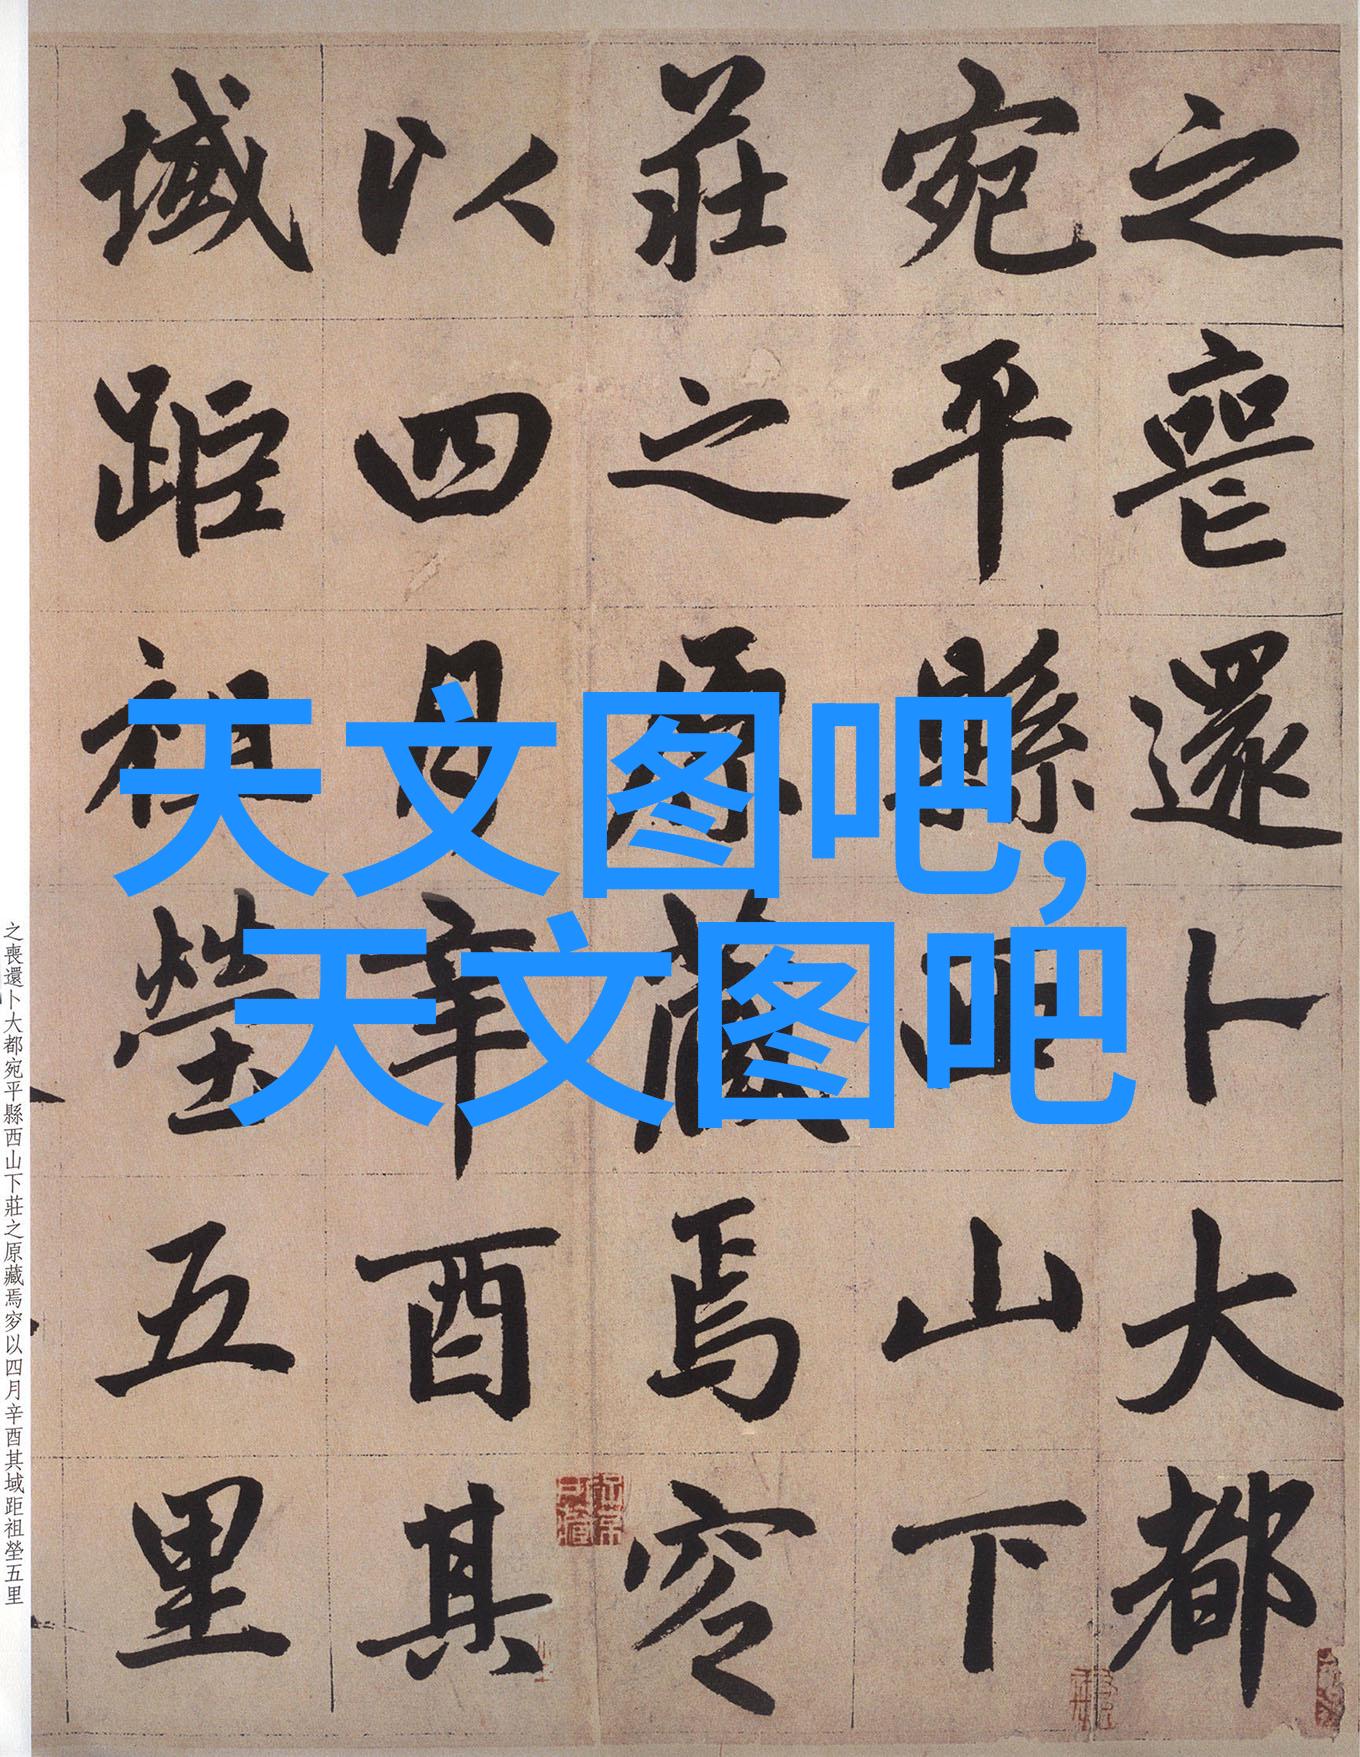 之喪還卜大都
宛平縣西山下
莊之原藏焉窆
以四月辛酉其
域距祖塋五里
天文图吧,
天文图吧
之喪還卜大都宛平縣西山下莊之原藏焉窆以四月辛酉其域距祖塋五里